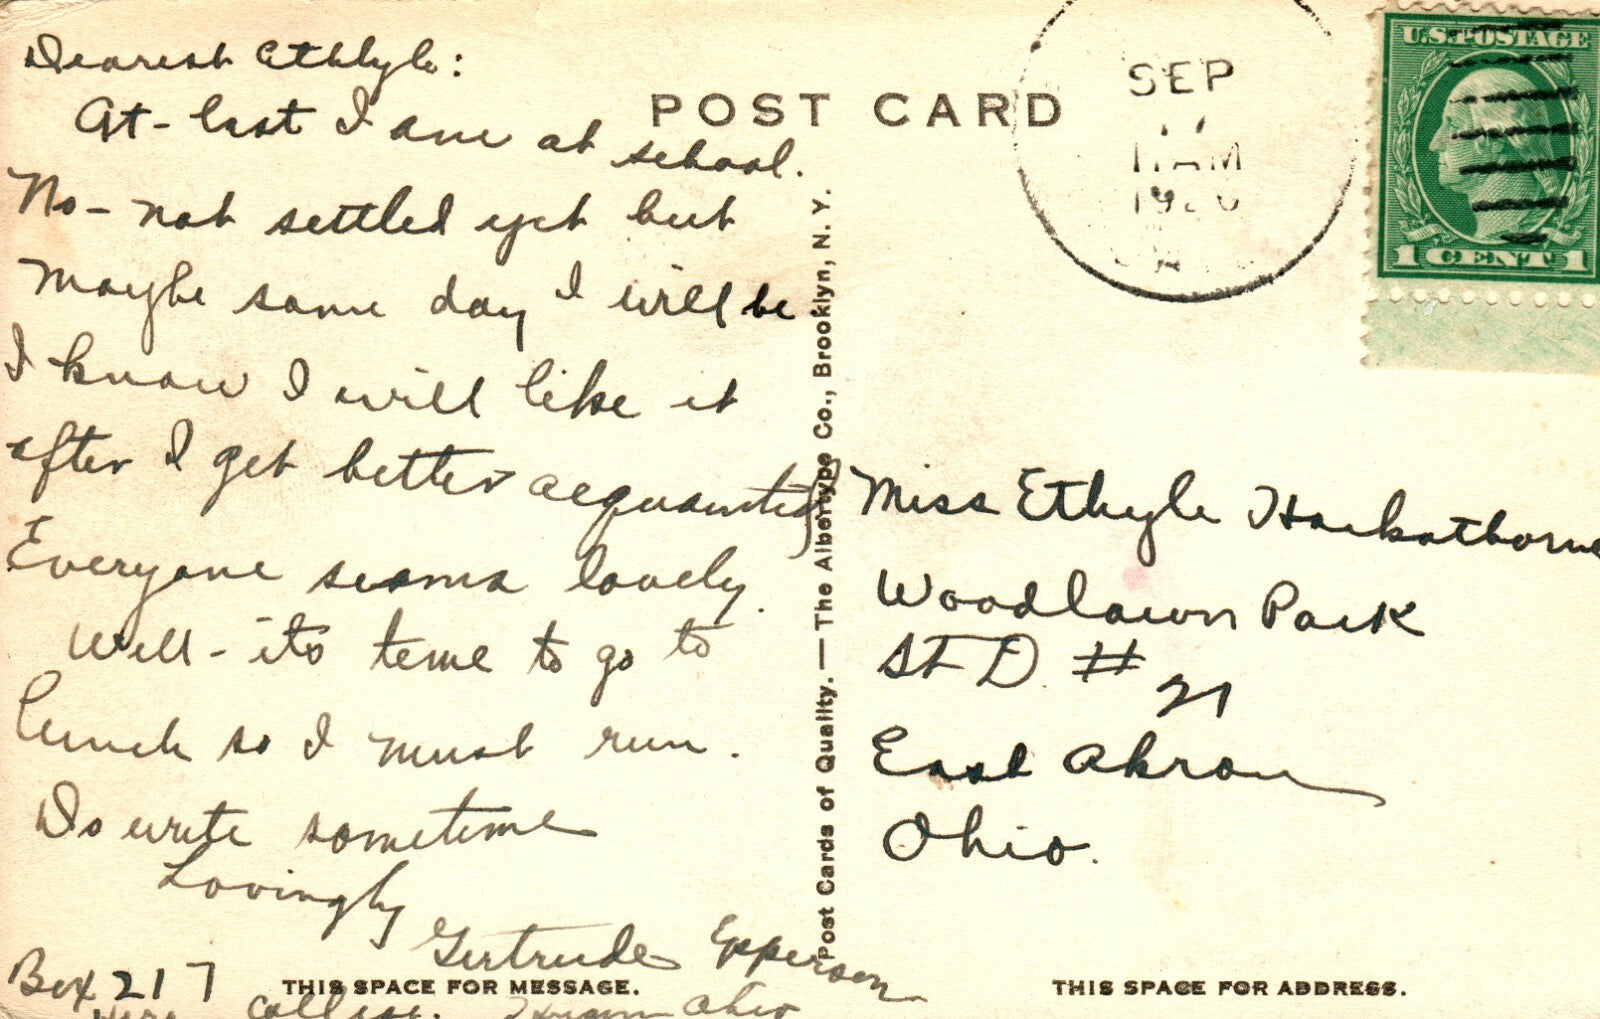 Dearest Ethlyle:
At-last I am at school.
No - not settled yet but
Maybe some day I will be.
I know I will like it
after I get better acquainted
Everyone seems lovely.
Well - its time to go to
lunch so I must run.
Do write sometime
Lovingly
Gertrude Epperson
Box 217
College. Ohio
POST CARD
SEP
11 AM
U.S. POSTAGE
1 CENT 1
Post Cards of Quality. — The Albertype Co., Brooklyn, N. Y.
Miss Ethyle Hackathorne
Woodlawn Park
St D. # 21
East Akron
Ohio.
THIS SPACE FOR MESSAGE.
THIS SPACE FOR ADDRESS.